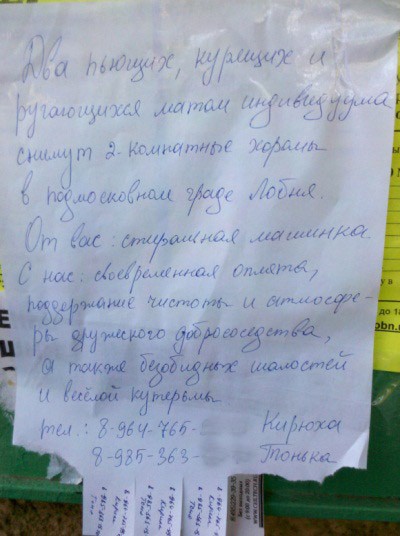 Два пьющих, курящих и
ругающихся матом индивидуума
снимут 2-комнатные хоромы
в подмосковном граде Лобня.
От вас: стиральная машинка.
С нас: своевременная оплата,
поддержание чистоты и атмосфе-
ры дружеского добрососедства,
а также безобидных шалостей
и весёлой кутерьмы
тел.: 8-964-765- Кирюха
8-985-363- Тонька